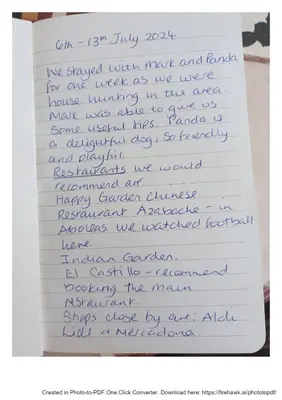 6th - 13th July 2024
We stayed with Mark and Panda
for one week as we were
house hunting in the area.
Mark was able to give us
some useful tips. Panda is
a delightful dog, so friendly
and playful.
Restaurants we would
recommend are
Happy Garden Chinese
Restaurant Azabache - in
Arboleas we watched football
here.
Indian Garden.
El Castillo - recommend
booking the main
restaurant.
Shops close by are: Aldi
Lidl + Mercadona.
Created in Photo-to-PDF One Click Converter. Download here: https://firehawk.ai/phototopdf/